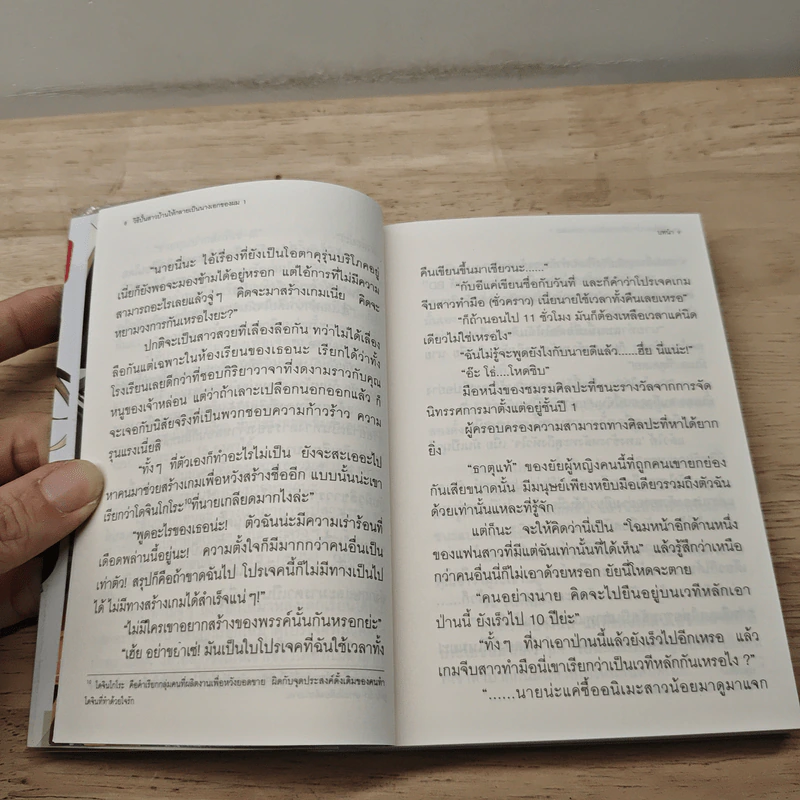 8 วิธีปั้นสาวบ้านให้กลายเป็นนางเอกของผม 1
“นายนี่นะ ไอ้เรื่องที่ยังเป็นโอตาคุรุ่นบริโภคอยู่
เนี่ยก็ยังพอจะมองข้ามได้อยู่หรอก แต่ไอ้การที่ไม่มีความ
สามารถอะไรเลยแล้วจู่ๆ คิดจะมาสร้างเกมเนี่ย คิดจะ
หยามวงการกันเหรอไงยะ?”
ปกติจะเป็นสาวสวยที่เลื่องลือกัน ทว่าไม่ได้เลื่อง
ลือกันแต่เฉพาะในห้องเรียนของเธอนะ เรียกได้ว่าทั้ง
โรงเรียนเลยดีกว่าที่ชอบกิริยาวาจาที่งดงามราวกับคุณ
หนูของเจ้าหล่อน แต่ว่าถ้าเลาะเปลือกนอกออกแล้ว ก็
จะเจอกับนิสัยจริงที่เป็นพวกชอบความก้าวร้าว ความ
รุนแรงเนี่ยสิ
“ทั้งๆ ที่ตัวเองก็ทำอะไรไม่เป็น ยังจะสะเออะไป
หาคนมาช่วยสร้างเกมเพื่อหวังสร้างชื่ออีก แบบนั้นน่ะเขา
เรียกว่าโดจินโกโระ10ที่นายเกลียดมากไงล่ะ”
“พูดอะไรของเธอน่ะ! ตัวฉันน่ะมีความเร่าร้อนที่
เดือดพล่านนี้อยู่นะ! ความตั้งใจก็มีมากกว่าคนอื่นเป็น
เท่าตัว! สรุปก็คือถ้าขาดฉันไป โปรเจคนี้ก็ไม่มีทางเป็นไป
ได้ ไม่มีทางสร้างเกมได้สำเร็จแน่ๆ!”
“ไม่มีใครเขาอยากสร้างของพรรค์นั้นกันหรอกย่ะ”
“เฮ้ย อย่าขยำเซ่! มันเป็นใบโปรเจคที่ฉันใช้เวลาทั้ง
10 โดจินโกโระ คือคำเรียกกลุ่มคนที่ผลิตงานเพื่อหวังยอดขาย ผิดกับจุดประสงค์ดั้งเดิมของคนทำ
โดจินที่ทำด้วยใจรัก
บทนำ 9
คืนเขียนขึ้นมาเชียวนะ......”
“กับอีแค่เขียนชื่อกับวันที่ และก็คำว่าโปรเจคเกม
จีบสาวทำมือ (ชั่วคราว) เนี่ยนายใช้เวลาทั้งคืนเลยเหรอ”
“ก็ถ้านอนไป 11 ชั่วโมง มันก็ต้องเหลือเวลาแค่นิด
เดียวไม่ใช่เหรอไง”
“ฉันไม่รู้จะพูดยังไงกับนายดีแล้ว......ฮึ่ย นี่แน่ะ!”
“อ๊ะ โธ่....โหดชิบ”
มือหนึ่งของชมรมศิลปะที่ชนะรางวัลจากการจัด
นิทรรศการมาตั้งแต่อยู่ชั้นปี 1
ผู้ครอบครองความสามารถทางศิลปะที่หาได้ยาก
ยิ่ง
“ธาตุแท้” ของยัยผู้หญิงคนนี้ที่ถูกคนเขายกย่อง
กันเสียขนาดนั้น มีมนุษย์เพียงหยิบมือเดียวรวมถึงตัวฉัน
ด้วยเท่านั้นแหละที่รู้จัก
แต่ก็นะ จะให้คิดว่านี่เป็น “โฉมหน้าอีกด้านหนึ่ง
ของแฟนสาวที่มีแต่ฉันเท่านั้นที่ได้เห็น” แล้วรู้สึกว่าเหนือ
กว่าคนอื่นนี่ก็ไม่เอาด้วยหรอก ยัยนี่โหดจะตาย
“คนอย่างนาย คิดจะไปยืนอยู่บนเวทีหลักเอา
ป่านนี้ ยังเร็วไป 10 ปีย่ะ”
“ทั้งๆ ที่มาเอาป่านนี้แล้วยังเร็วไปอีกเหรอ แล้ว
เกมจีบสาวทำมือนี่เขาเรียกว่าเป็นเวทีหลักกันเหรอไง ?”
“......นายน่ะแค่ซื้ออนิเมะสาวน้อยมาดูมาแจก